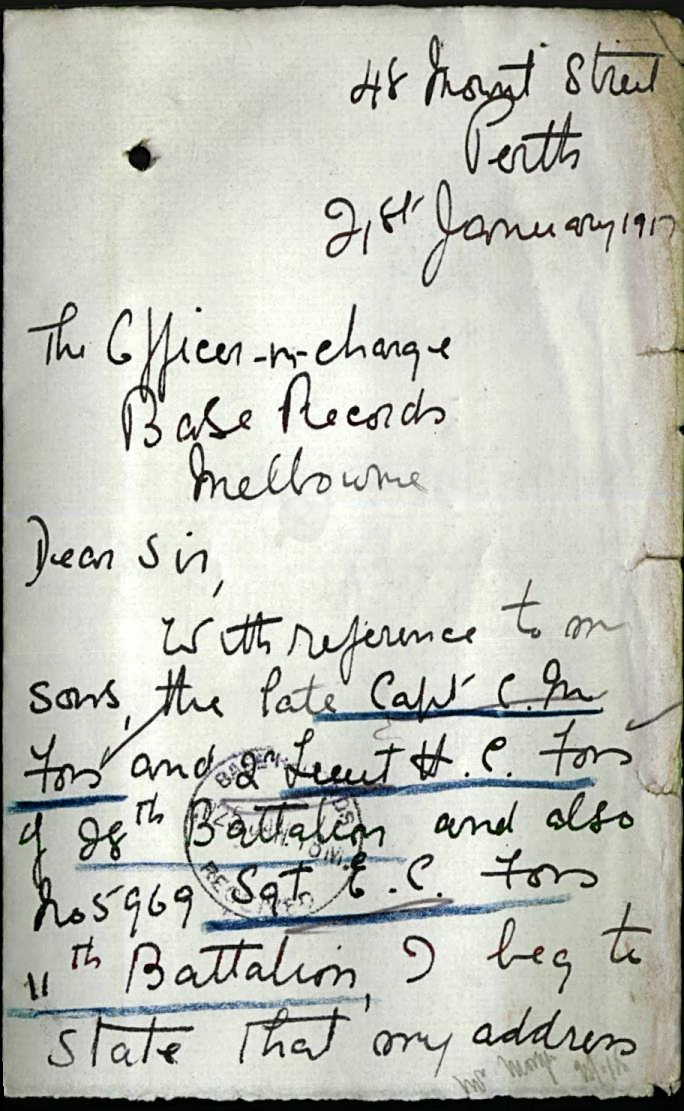 48 Mount Street
Perth
21st January 1917
The Officer-in-charge
Base Records
Melbourne
Dear Sir,
With reference to m
sons, the late Capt C. M.
Foss and 2nd Lieut H. C. Foss
of 28th Battalion and also
No 5969 Sgt E. C. Foss
11th Battalion, I beg to
state that my address